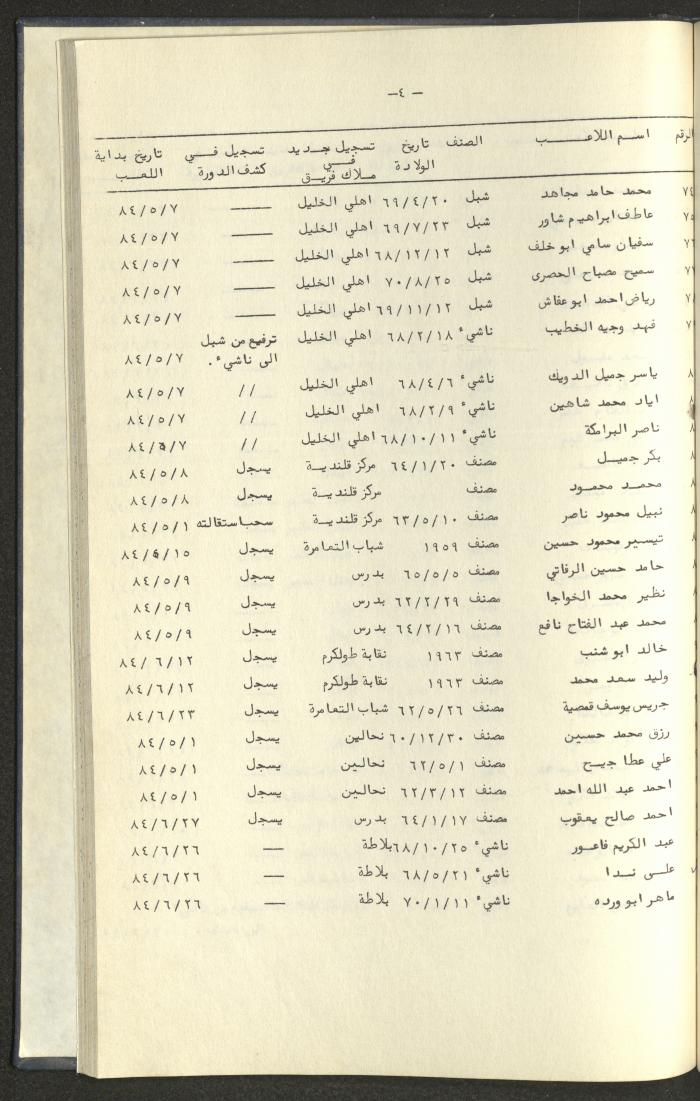 – ٤ –
الرقم اسم اللاعب الصنف تاريخ الولادة تسجيل جديد في ملاك فريق تسجيل في كشف الدورة تاريخ بداية اللعب
٧٤ محمد حامد مجاهد شبل ٦٩/٤/٢٠ اهلي الخليل —— ٨٤/٥/٧
٧٥ عاطف ابراهيم شاور شبل ٦٩/٧/٢٣ اهلي الخليل —— ٨٤/٥/٧
٧٦ سفيان سامي ابو خلف شبل ٦٨/١٢/١٢ اهلي الخليل —— ٨٤/٥/٧
سميح مصباح الحصرى شبل ٧٠/٨/٢٥ اهلي الخليل —— ٨٤/٥/٧
رياض احمد ابو عفاش شبل ٦٩/١١/١٢ اهلي الخليل —— ٨٤/٥/٧
فهد وجيه الخطيب ناشيء ٦٨/٢/١٨ اهلي الخليل ترفيع من شبل
الى ناشيء. ٨٤/٥/٧
ياسر جميل الدويك ناشيء ٦٨/٤/٦ اهلي الخليل // ٨٤/٥/٧
اياد محمد شاهين ناشيء ٦٨/٢/٩ اهلي الخليل // ٨٤/٥/٧
ناصر البرامكة ناشيء ٦٨/١٠/١١ اهلي الخليل // ٨٤/٥/٧
بكر جميل مصنف ٦٤/١/٢٠ مركز قلندية يسجل ٨٤/٥/٨
محمد محمود مصنف مركز قلندية يسجل ٨٤/٥/٨
نبيل محمود ناصر مصنف ٦٣/٥/١٠ مركز قلندية سحب استقالته ٨٤/٥/١
تيسير محمود حسين مصنف ١٩٥٩ شباب التعامرة يسجل ٨٤/٥/١٥
حامد حسين الرفاتي مصنف ٦٥/٥/٥ بدرس يسجل ٨٤/٥/٩
نظير محمد الخواجا مصنف ٦٢/٢/٢٩ بدرس يسجل ٨٤/٥/٩
محمد عبد الفتاح نافع مصنف ٦٤/٢/١٦ بدرس يسجل ٨٤/٥/٩
خالد ابو شنب مصنف ١٩٦٣ نقابة طولكرم يسجل ٨٤/٦/١٢
وليد سعد محمد مصنف ١٩٦٣ نقابة طولكرم يسجل ٨٤/٦/١٢
جريس يوسف قمصية مصنف ٦٢/٥/٢٦ شباب التعامرة يسجل ٨٤/٦/٢٣
رزق محمد حسين مصنف ٦٠/١٢/٣٠ نحالين يسجل ٨٤/٥/١
علي عطا جيح مصنف ٦٢/٥/١ نحالين يسجل ٨٤/٥/١
احمد عبد الله احمد مصنف ٦٢/٣/١٢ نحالين يسجل ٨٤/٥/١
احمد صالح يعقوب مصنف ٦٤/١/١٧ بدرس يسجل ٨٤/٦/٢٧
عبد الكريم فاعور ناشيء ٦٨/١٠/٢٥ بلاطة — ٨٤/٦/٢٦
علي ندا ناشيء ٦٨/٥/٢١ بلاطة — ٨٤/٦/٢٦
ماهر ابو ورده ناشيء ٧٠/١/١١ بلاطة — ٨٤/٦/٢٦